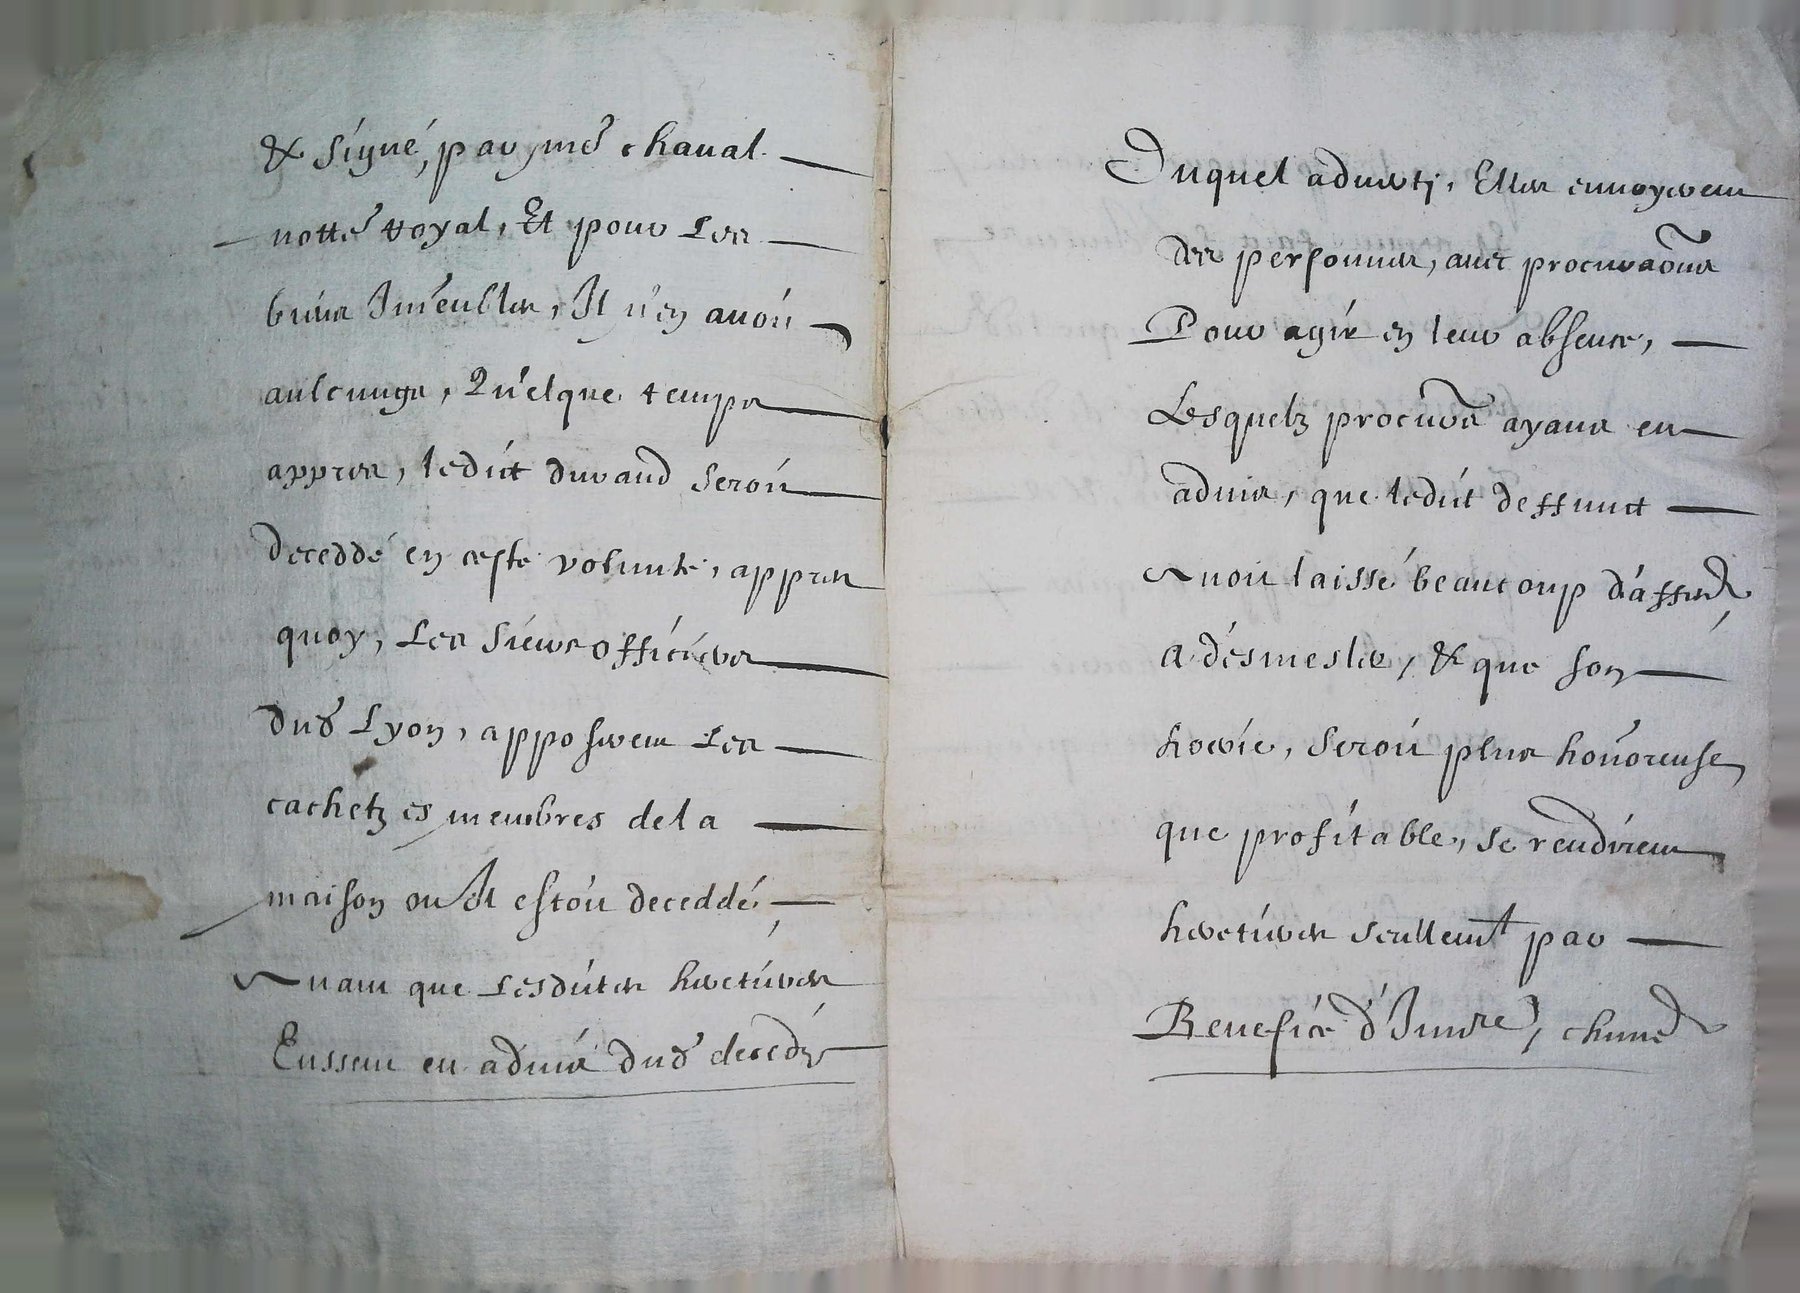 & signé, par me chaual
notte royal, Et pour Les
biens Im'eubles, Il n'en auoit
aulcungs, Quelque temps
appres, ledict durand seroit
deceddé en ceste volunté, appres
quoy, Les sieurs officiers
dud Lyon, apposerent Les
cachetz es membres de la
maison ou Il estoit deceddé,
Auant que Lesdites heretieres
Eussent eu aduis dud decedz
Duquel aduerti, Elles enuoyerent
des personnes, auec procuraons
Pour agir en leur absence,
Lesquelz procurs ayant eu
aduis, que ledict deffunct
Auoit laissé beaucoup d'affres
a desmesler, & que son
hoerie, seroit plus honoreuse
que profitable, se rendirent
heretieres seullemt par
Benefice d'Inure,